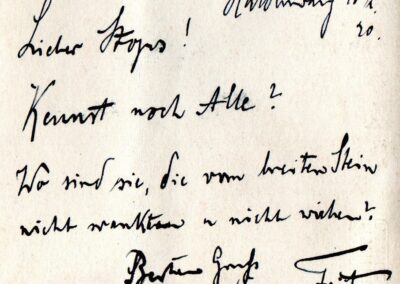 20.
Lieber Stops!
Kennst noch Alle?
Wo sind sie, die vom breiten Stein
nicht wankten u nicht wichen?
Besten Gruß